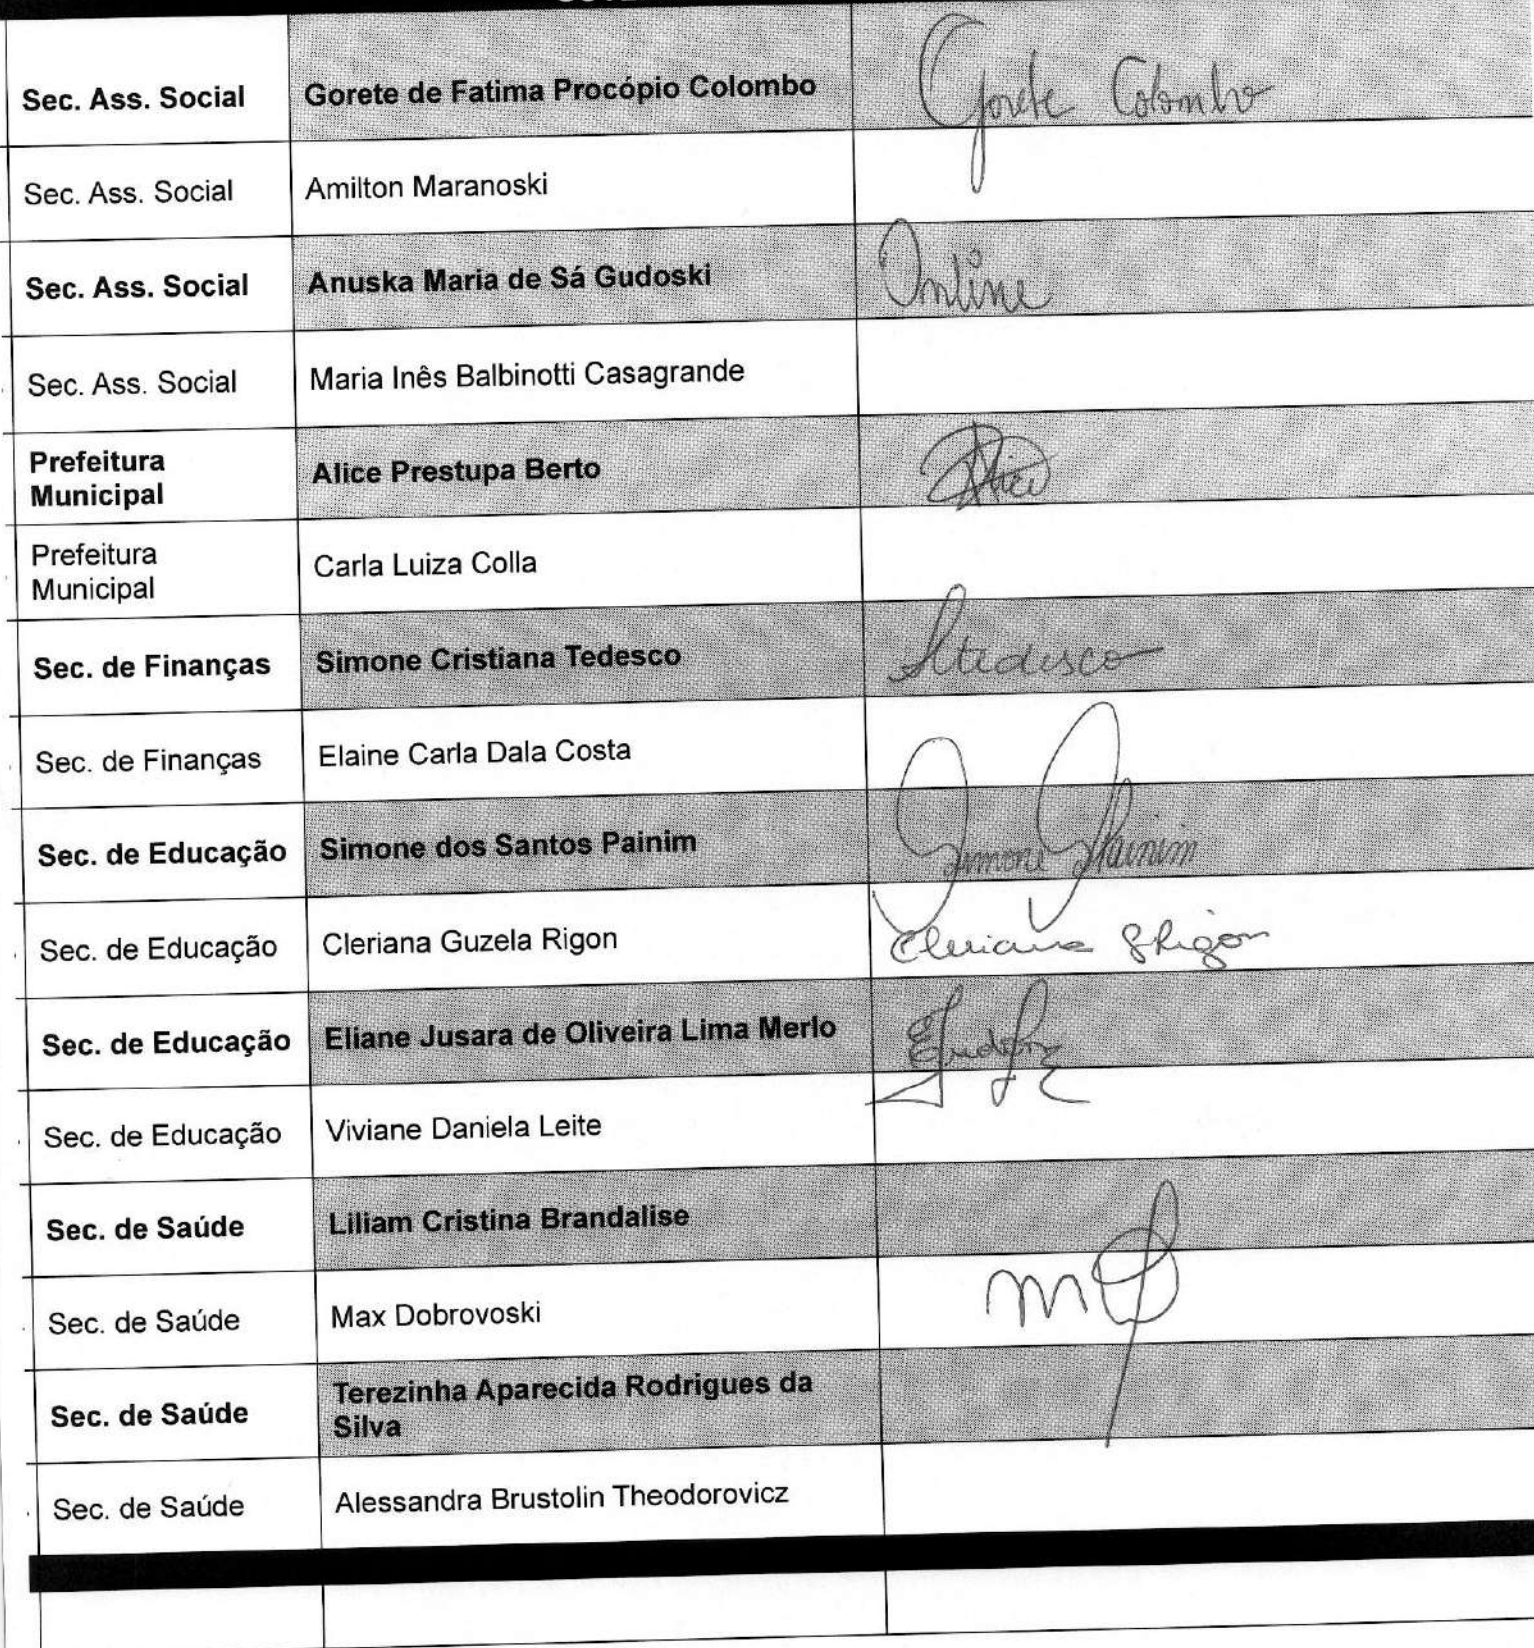 Sec. Ass. Social Gorete de Fatima Procópio Colombo Gorete Colombo
Sec. Ass. Social Amilton Maranoski
Sec. Ass. Social Anuska Maria de Sá Gudoski Online
Sec. Ass. Social Maria Inês Balbinotti Casagrande
Prefeitura
Municipal
Alice Prestupa Berto
Prefeitura
Municipal
Carla Luiza Colla
Sec. de Finanças Simone Cristiana Tedesco Stedesco
Sec. de Finanças Elaine Carla Dala Costa
Sec. de Educação Simone dos Santos Painim Simone Painim
Sec. de Educação Cleriana Guzela Rigon Cleriana GRigon
Sec. de Educação Eliane Jusara de Oliveira Lima Merlo
Sec. de Educação Viviane Daniela Leite
Sec. de Saúde Liliam Cristina Brandalise
Sec. de Saúde Max Dobrovoski
Sec. de Saúde
Terezinha Aparecida Rodrigues da
Silva
Sec. de Saúde Alessandra Brustolin Theodorovicz